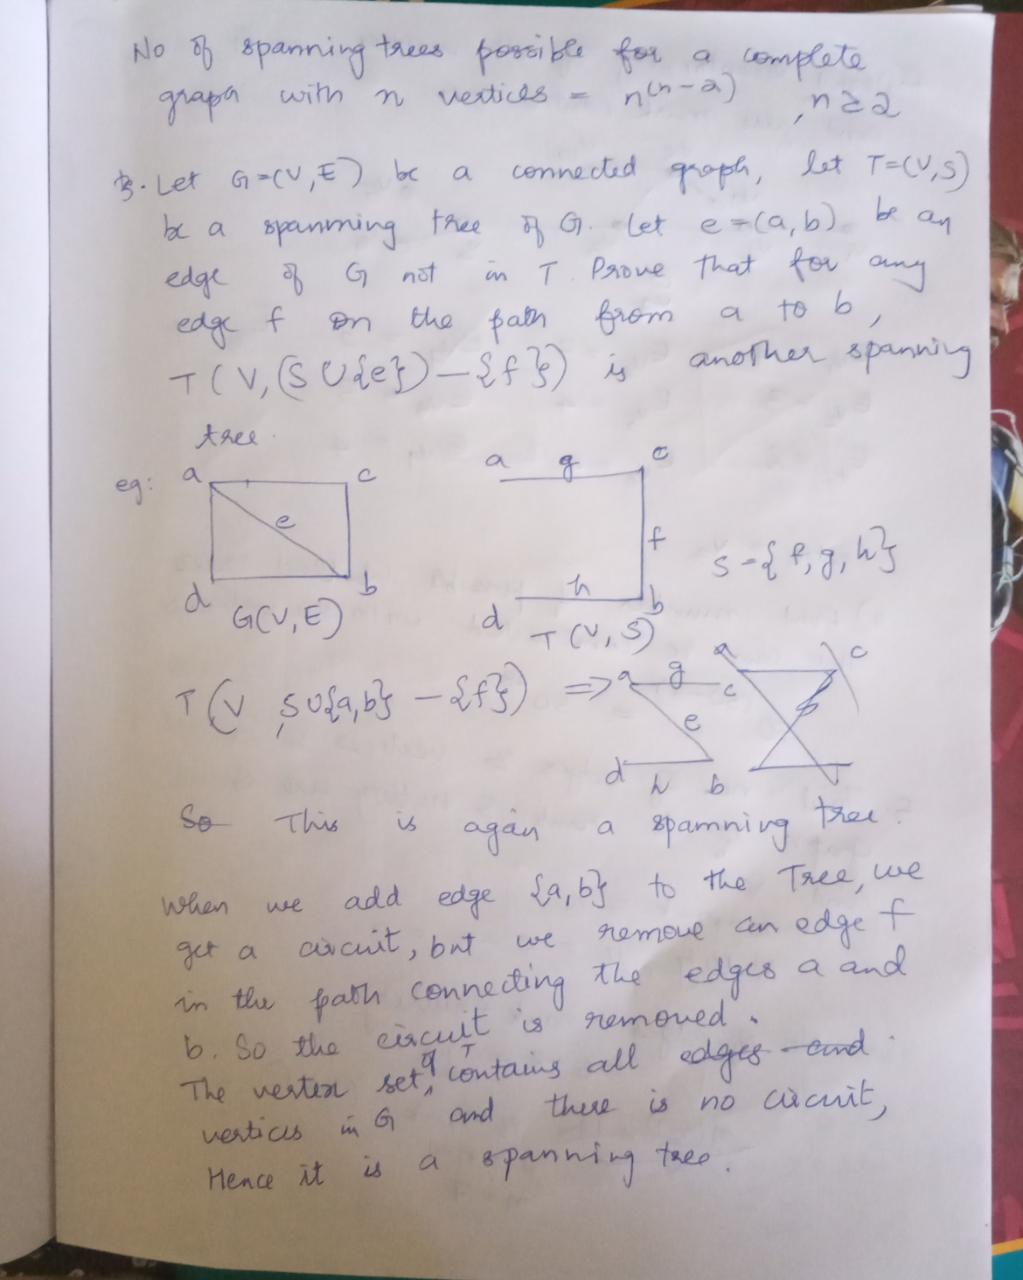 No of spanning trees possible for a complete
graph with n vertices = n(n-2) , n≥2
3. Let G=(V,E) be a connected graph, let T=(V,S)
be a spanning tree of G. Let e=(a,b) be an
edge of G not in T. Prove that for any
edge f on the path from a to b,
T(V,(S∪{e})-{f}) is another spanning
tree.
eg: a c a g c
e
f S={f,g,h}
d b h
G(V,E) d b
T(V,S)
a c
T(V, S∪{a,b} - {f}) => a g c
e
d h b
So This is again a spanning tree.
When we add edge {a,b} to the Tree, we
get a circuit, but we remove an edge f
in the path connecting the edges a and
b. So the circuit is removed.
The vertex set of T contains all edges and
vertices in G and there is no circuit,
Hence it is a spanning tree.